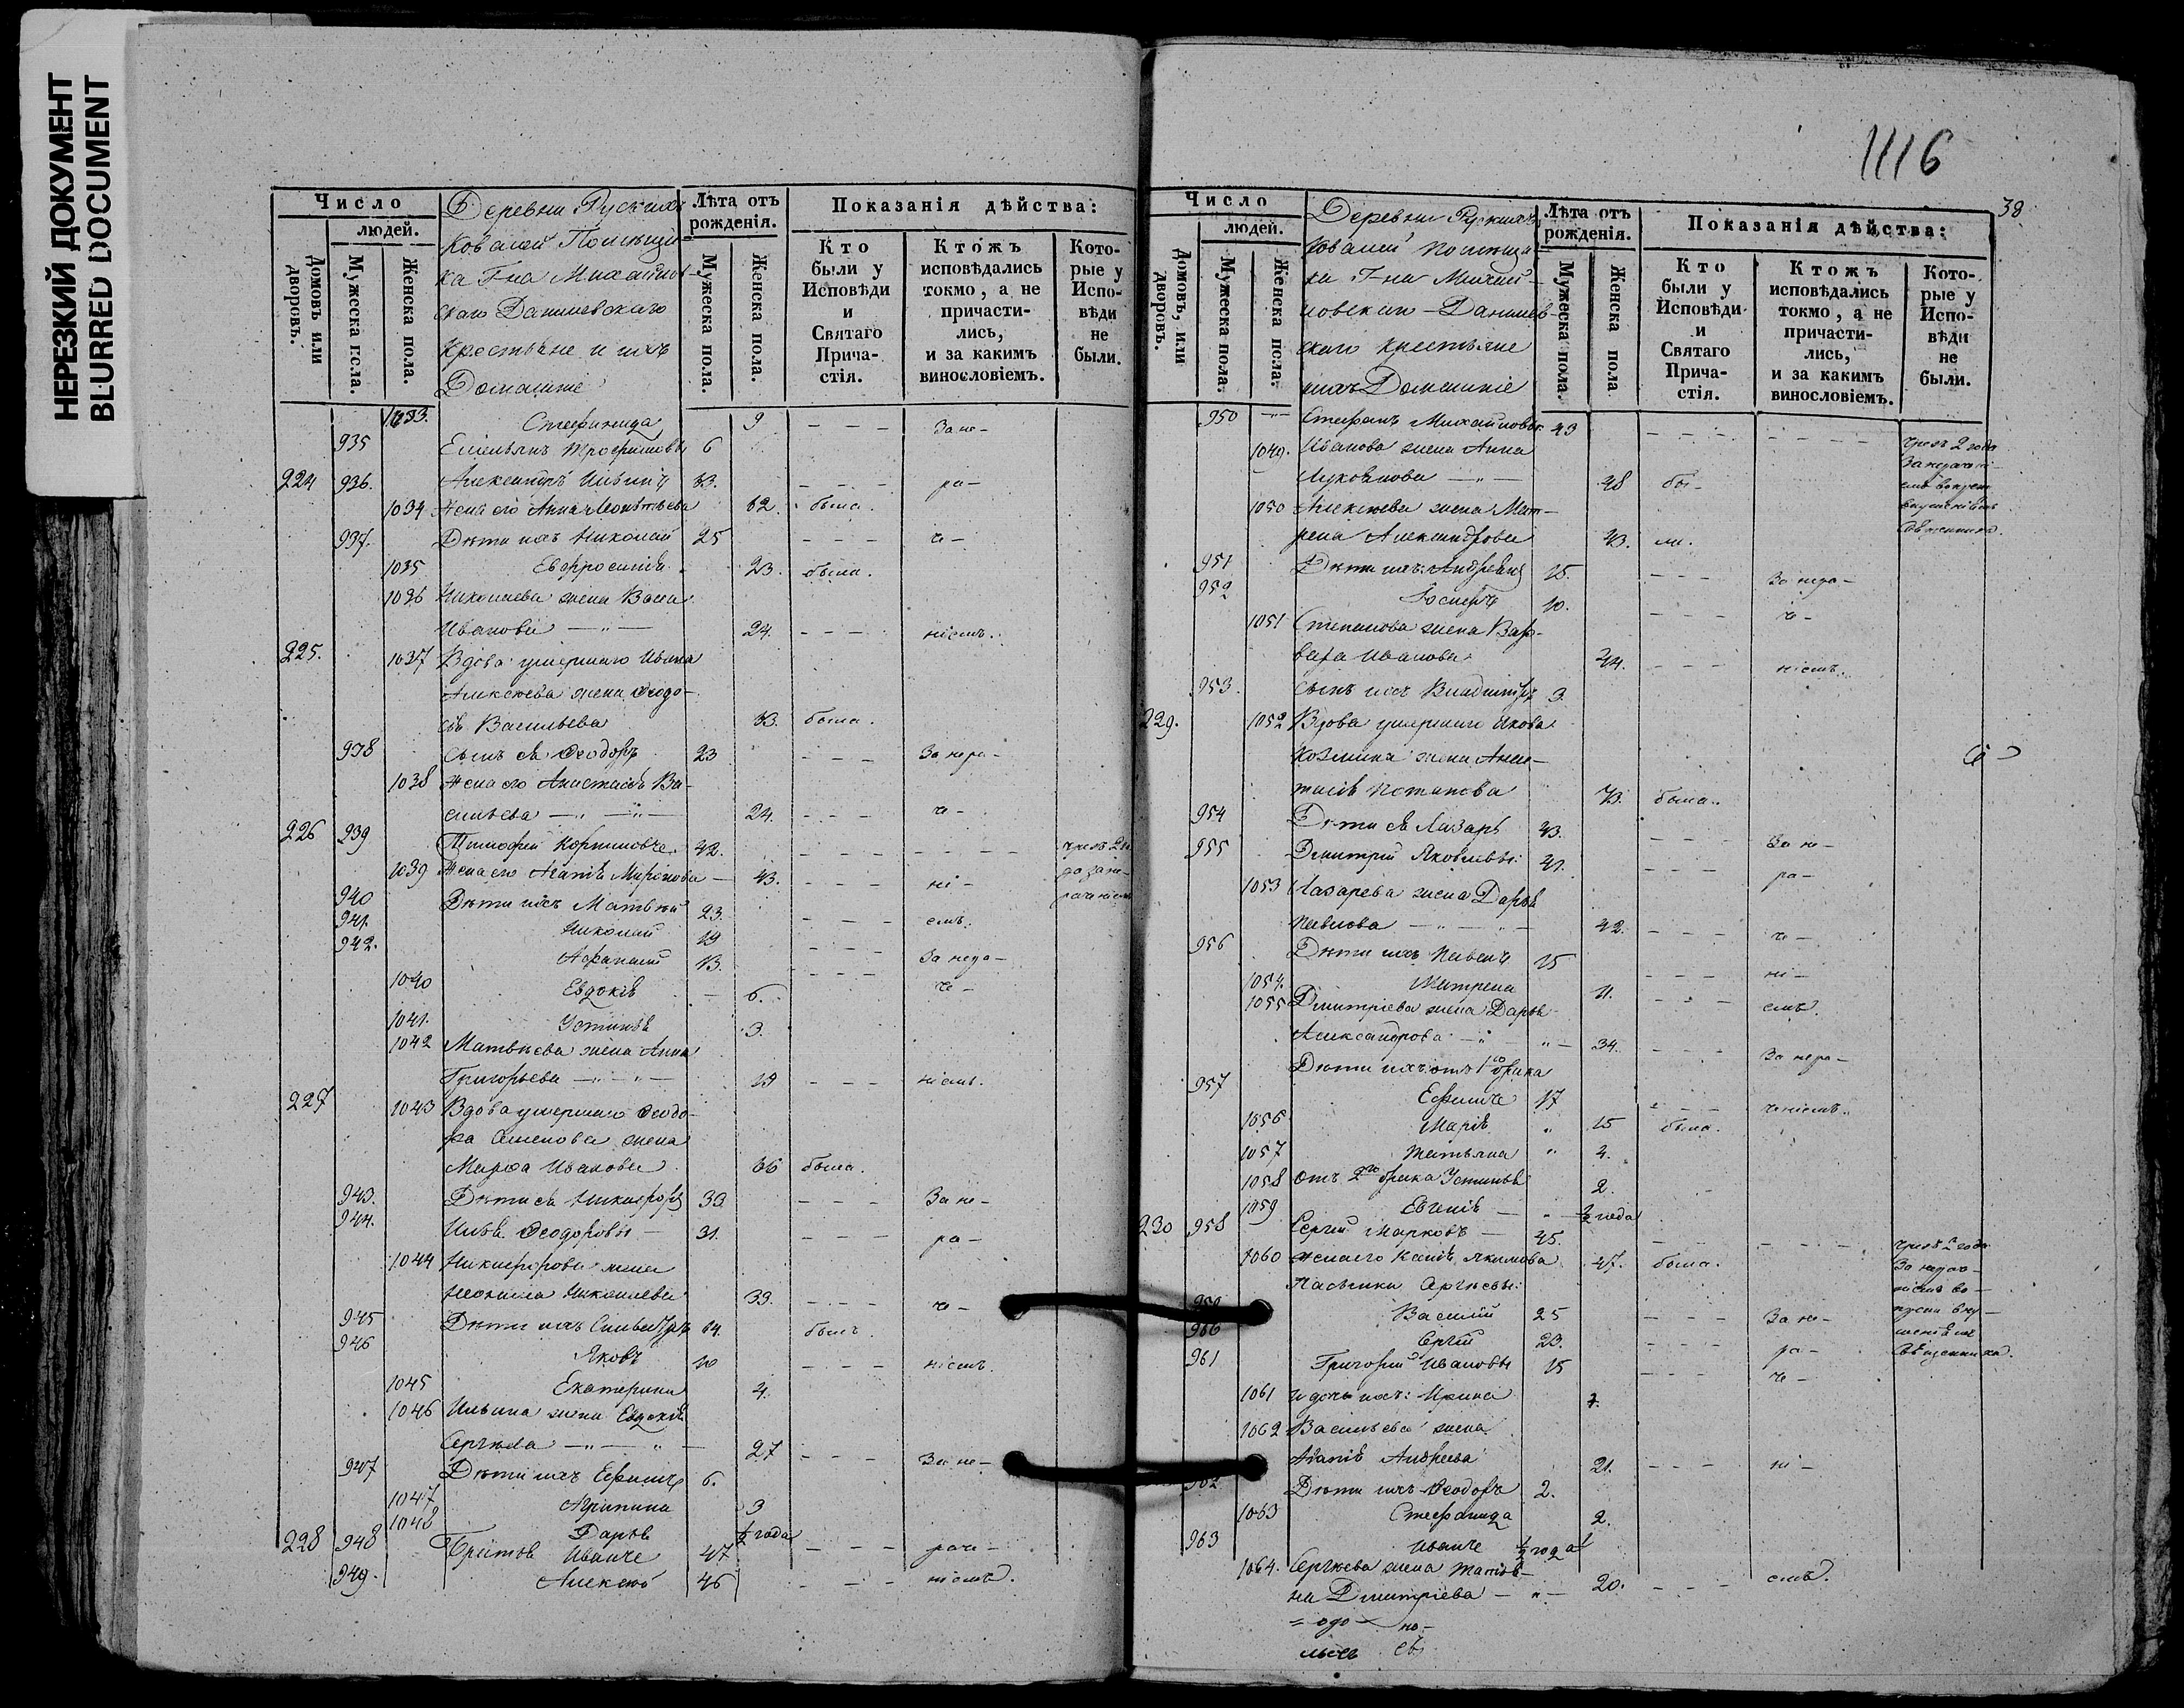 НЕРЕЗКИЙ ДОКУМЕНТ
BLURRED DOCUMENT
Число
людей.
Домовъ или дворовъ.
Мужеска пола.
Женска пола.
Деревни Рускихъ
Ковалей Помѣщи-
ка Г-на Михайлов-
скаго Данилевскаго
Крестьяне и ихъ
Домашніе
Лѣта отъ рожденія.
Мужеска пола.
Женска пола.
Показанія дѣйства:
Кто были у Исповѣди и Святаго Прича-стія.
Ктожъ исповѣдались токмо, а не причасти-лись, и за какимъ винословіемъ.
Кото-рые у Испо-вѣди не были.
1033. Стефанида 9 – – – За не-
935 Емельянъ Трофимовъ 6
224 936. Александръ Ильинъ 63. – – – ра-
1034 Жена его Анна Леонтьева 62. была.
937. Дѣти ихъ Николай 25 – – – че-
1035 Евфросинія 23. была.
1036 Николаева жена Васса
Иванова 24. – – – ніемъ.
225. 1037 Вдова умершаго Ивана
Алексѣева жена Ѳеодо-
сія Васильева 63. была.
938 Сынъ ея Ѳеодоръ 23 – – – За нера-
1038 Жена его Анастасія Ва-
сильева 24. – – – че-
226 939 Тимофей 42. – – – – – – чрезъ 2
1039 Жена его Агапія Миронова 43. – – – ні-
940 Дѣти ихъ Матвѣй 23. – – – емъ.
941. Николай 19 – – – За нера-
942. Афанасій 13. – – – че-
1040 Евдокія 6.
1041. Устинія 3.
1042 Матвѣева жена Анна
Григорьева 19 – – – ніемъ.
227 1043 Вдова умершаго Ѳеодо-
ра Семенова жена
Марѳа Иванова 66 была.
943. Дѣти ея Никифоръ 33. – – – За не-
944. Илья Ѳеодоровы 31. – – – ра-
1044 Никифорова жена
Неонила Николаева 33. – – – че-
945 Дѣти ихъ Сильвестръ 14. былъ.
946 Яковъ 10 – – – ніемъ.
1045 Екатерина 4.
1046 Ильина жена Евдокія
Сергѣева 27 – – – За не-
947 Дѣти ихъ Ефимъ 6.
1047 Агрипина 3
1048 Дарья ½ года
228 948 Братья Иванъ 47 – – – раче-
949. Алексѣй 46 – – – ніемъ.
1116
38
Число
людей.
Домовъ, или дворовъ.
Мужеска пола.
Женска пола.
Деревни Рускихъ
Ковалей помѣщи-
ка Г-на Михай-
ловскаго-Данилев-
скаго крестьяне
ихъ Домашніе
Лѣта отъ рожденія.
Мужеска пола.
Женска пола
Показанія дѣйства:
Кто были у Исповѣди и Святаго Прича-стія.
Ктожъ исповѣдались токмо, а не причасти-лись, и за какимъ винословіемъ.
Кото-рые у Испо-вѣди не были.
950 Стефанъ Михайловы 43 – – – – – – – – чрезъ 2 года
1049. Иванова жена Анна
Лукьянова 48 бы-
1050 Алексѣева жена Мат-
рена Александрова 43. ли.
951 Дѣти ихъ: Андрей 15. – – – За нера-
952 Іосифъ 10. – – – че-
1051 Степанова жена Вар-
вара Иванова 44. – – – ніемъ.
953. Сынъ ихъ Владиміръ 3
229. 1052 Вдова умершаго Якова
Козмина жена Анас-
тасія Потапова 73. была.
954 Дѣти ея Лазарь 43. – – – За не-
955 Дмитрій Яковлевы: 41. – – – ра-
1053 Лазарева жена Дарья
Павлова 42. – – – че-
956 Дѣти ихъ Павелъ 15 – – – ні-
1054. Матрена 11. – – – емъ.
1055 Дмитріева жена Дарья
Александрова 34. – – – За нера-
Дѣти ихъ отъ 1го брака
957 Ефимъ 17 – – – ченіемъ.
1056 Марія 15 была.
1057 Татьяна 4.
1058 Отъ 2го брака Устинья 2.
1059 Евгенія ½ года
230 958 Сергій Марковъ 45. – – – – – – чрезъ 2 года
1060 Жена его Якимова 47. была.
Пасынки Сергѣевы:
959 Василій 25 – – – За не-
960 Сергій 23. – – – ра-
961 Григорій Ивановы 15 – – – че-
1061 и дочь ихъ: Ирина 7.
1062 Васильева жена
Агапія Андреева 21. – – – ні-
962 Дѣти ихъ Ѳеодоръ 2.
1063 Стефанида 2.
963 Иванъ ½ года
1064. Сергѣева жена Татья-
на Дмитріева 20. – – – емъ.